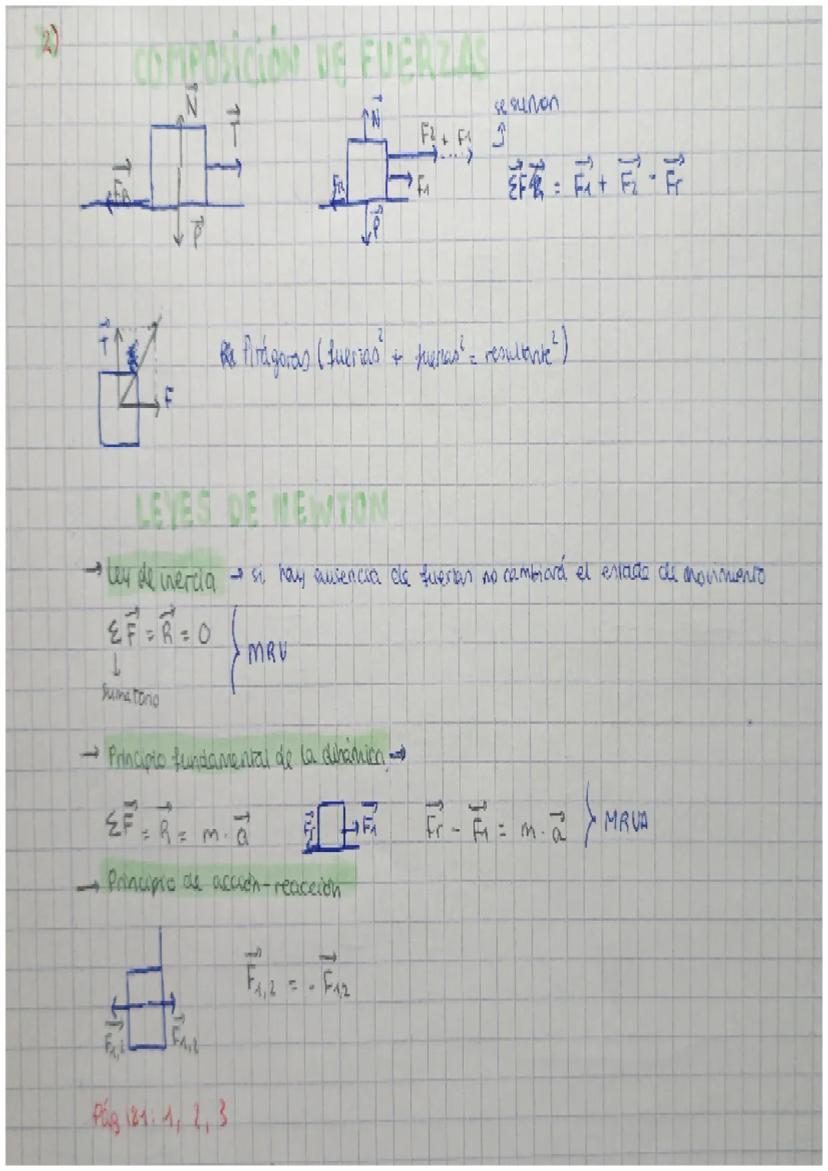 2)
COMPOSICIÓN DE FUERZAS
N T
FR P
N F2 + F1 se suman
FR F1 P
ΣFR = F1 + F2 - Fr
T F
Pitágoras (fuerzas² + fuerzas² = resultante²)
LEYES DE NEWTON
→ Ley de inercia → si hay ausencia de fuerzas no cambiará el estado de movimiento
ΣF = R = 0 } MRU
↓
Sumatorio
→ Principio fundamental de la dinámica →
ΣF = R = m · a Fr F1 Fr - F1 = m · a } MRUA
→ Principio de acción-reacción
F1,2 = - F1,2
F1,2 F1,2
Pág 181: 1, 2, 3